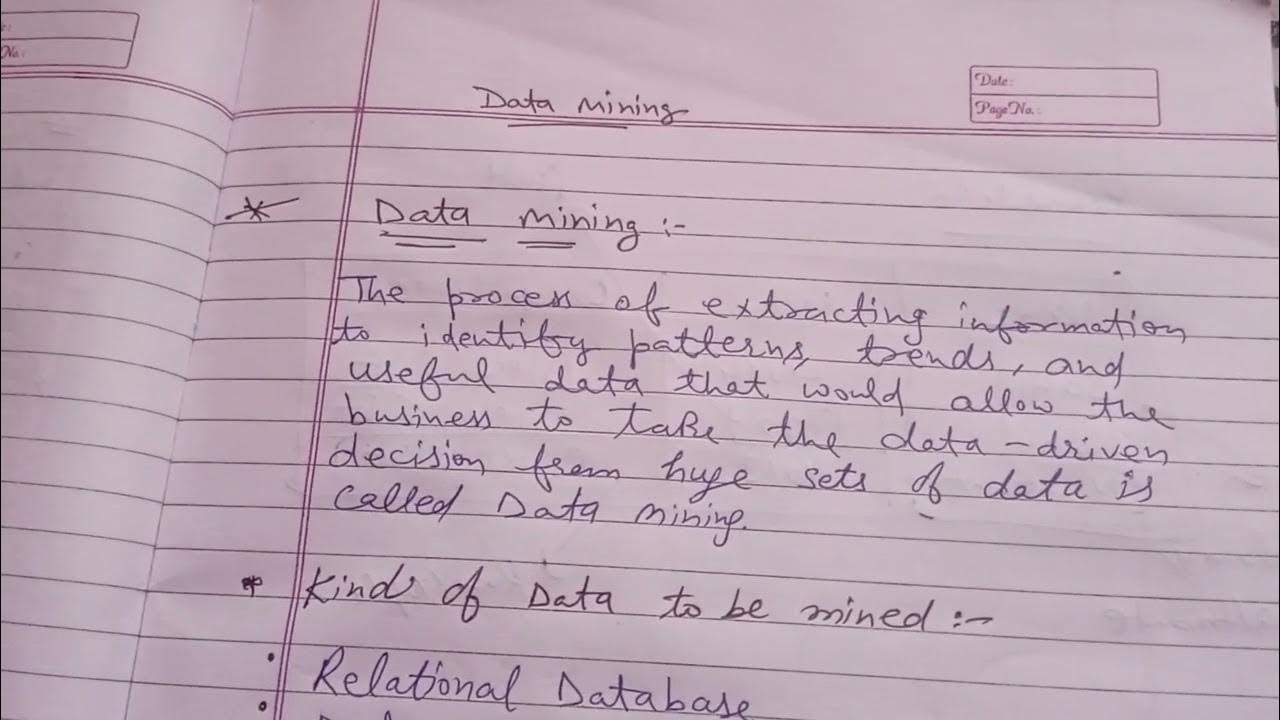 No.:
Data Mining
Date:
Page No.:
* Data Mining :-
The process of extracting information
to identify patterns, trends, and
useful data that would allow the
business to take the data-driven
decision from huge sets of data is
called Data Mining.
* Kinds of Data to be mined :-
• Relational Database